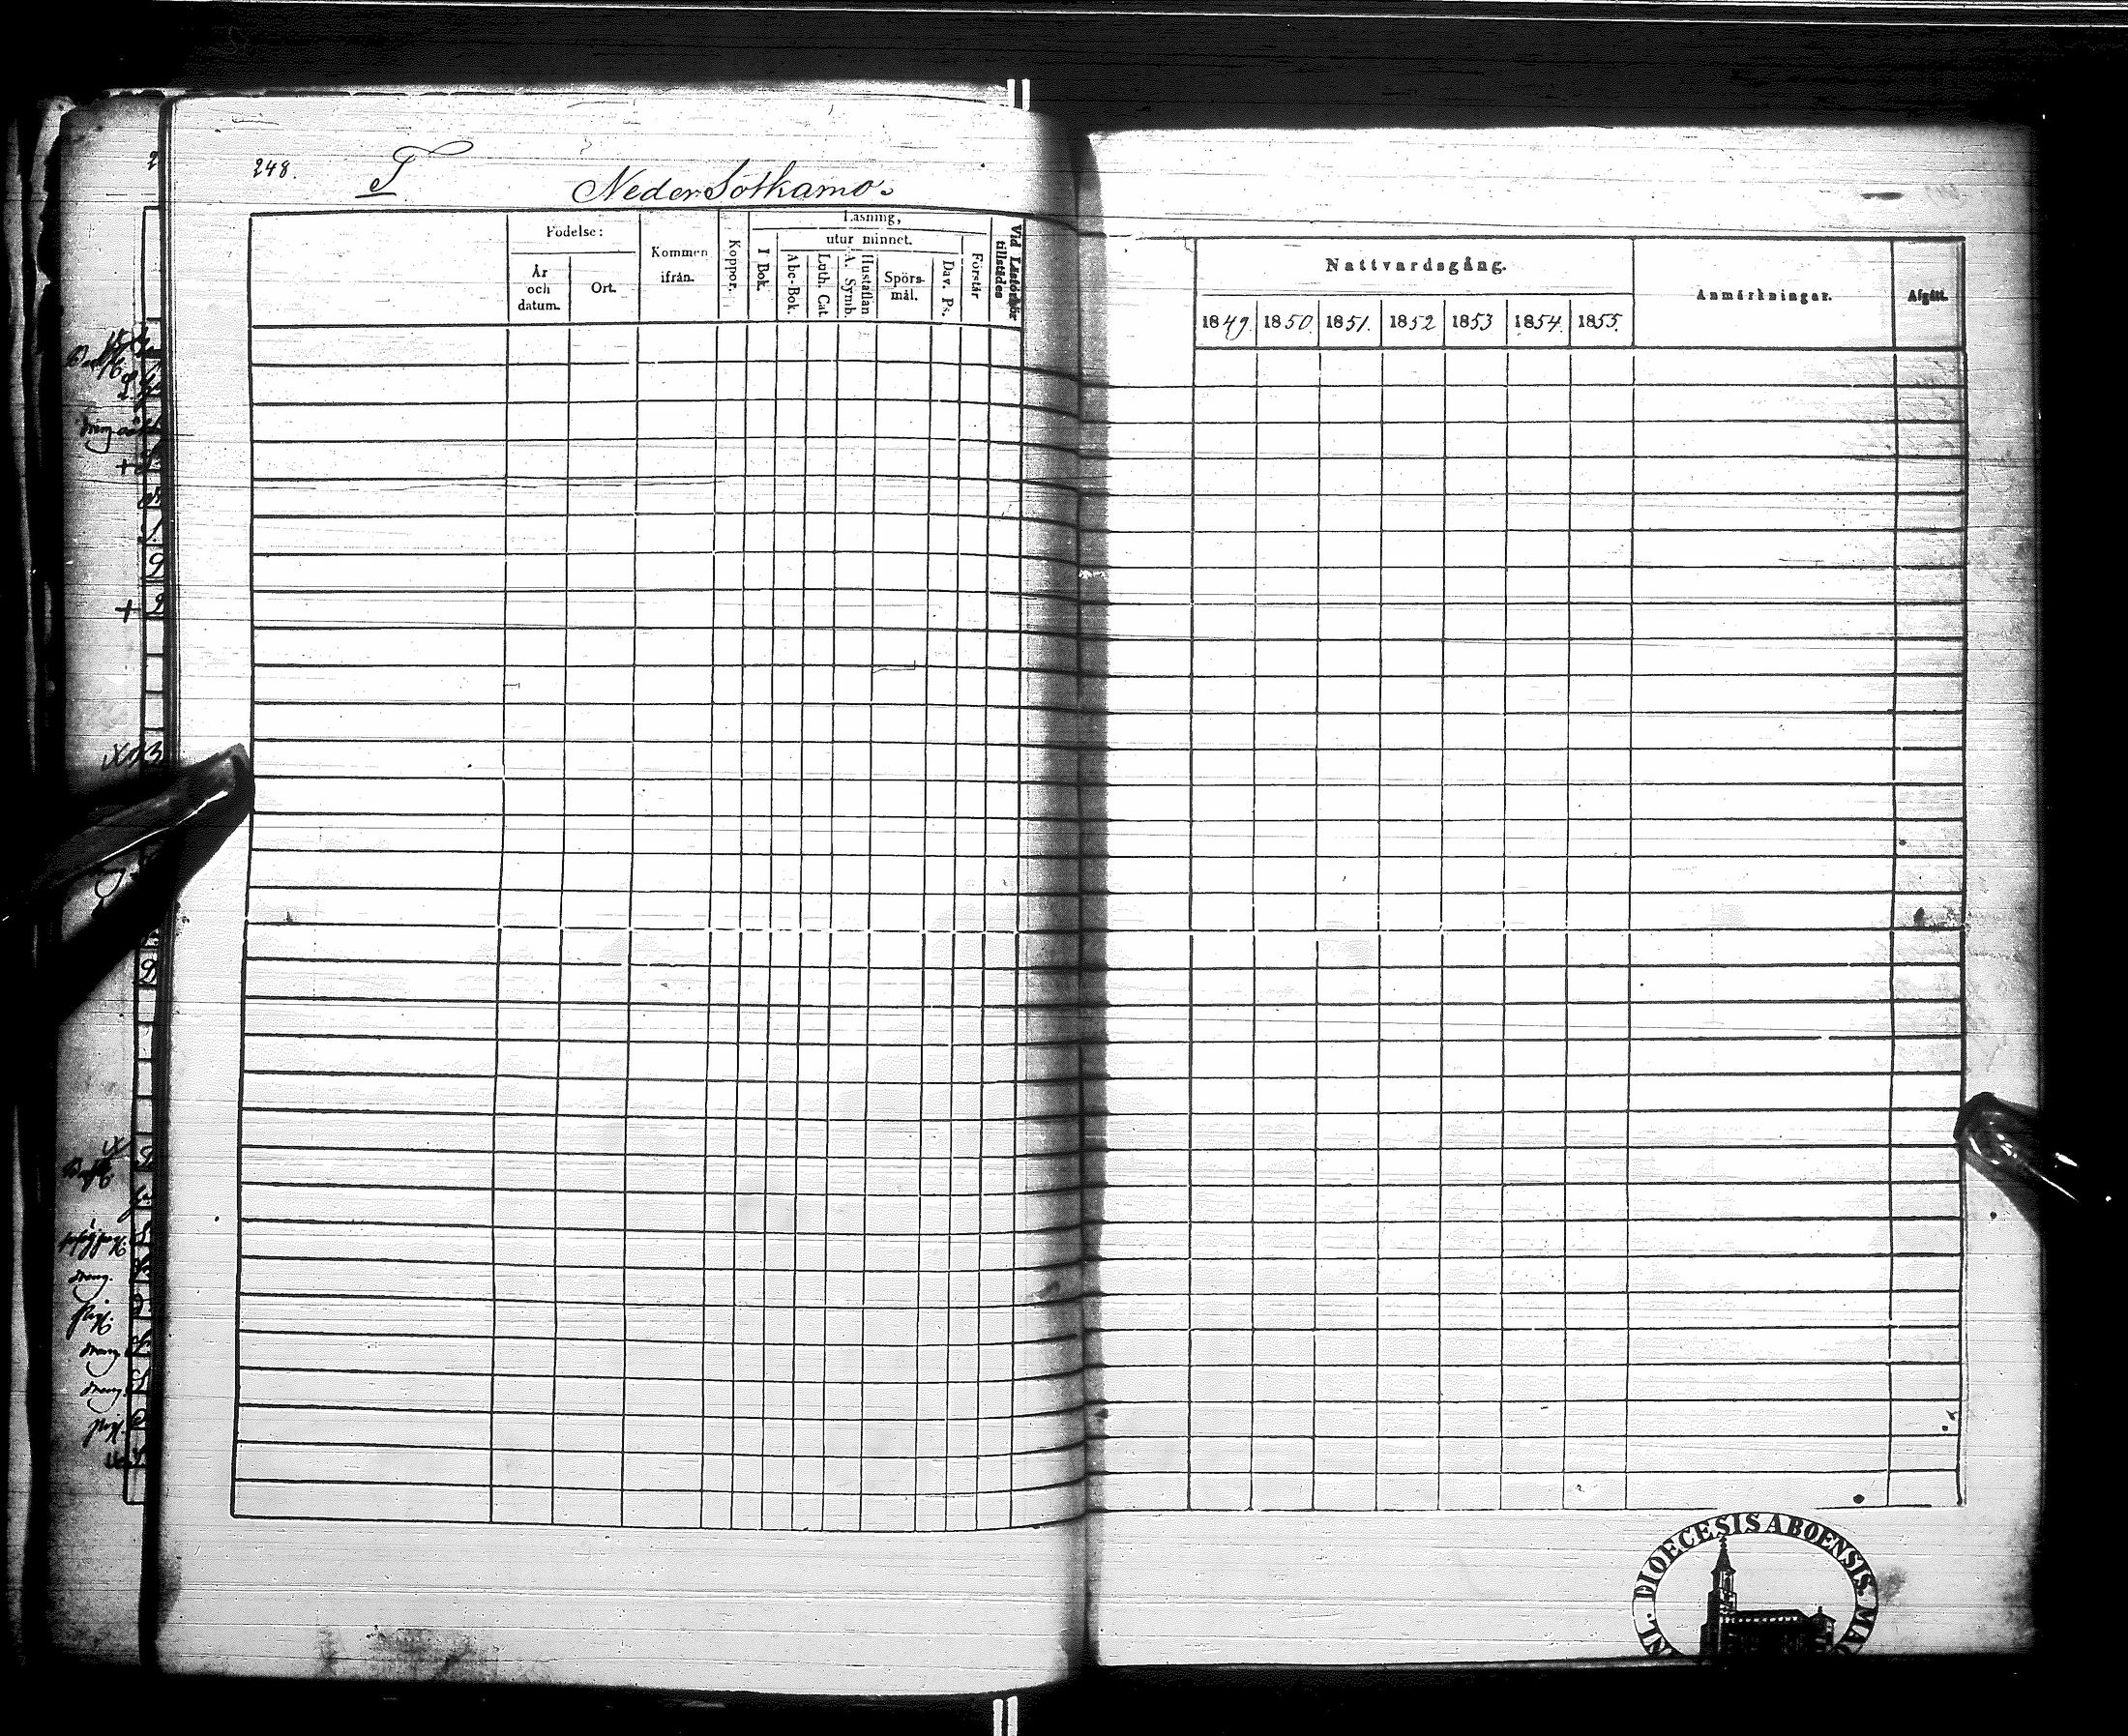 248.
T
Neder Sotkamo.
Födelse:
År
och
datum.
Ort.
Kommen
ifrån.
Koppor.
Läsning,
I Bok.
utur minnet.
Abc-Bok.
Luth. Cat
A. Symb.
Hustaflan
Spörs-
mål.
Dav. Ps.
Förstår
Vid Läsförhör
tillstädes
Nattvardsgång.
1849. 1850. 1851. 1852 1853 1854. 1855.
Anmärkningar.
Afgått.
DIOECESIS ABOENSIS.